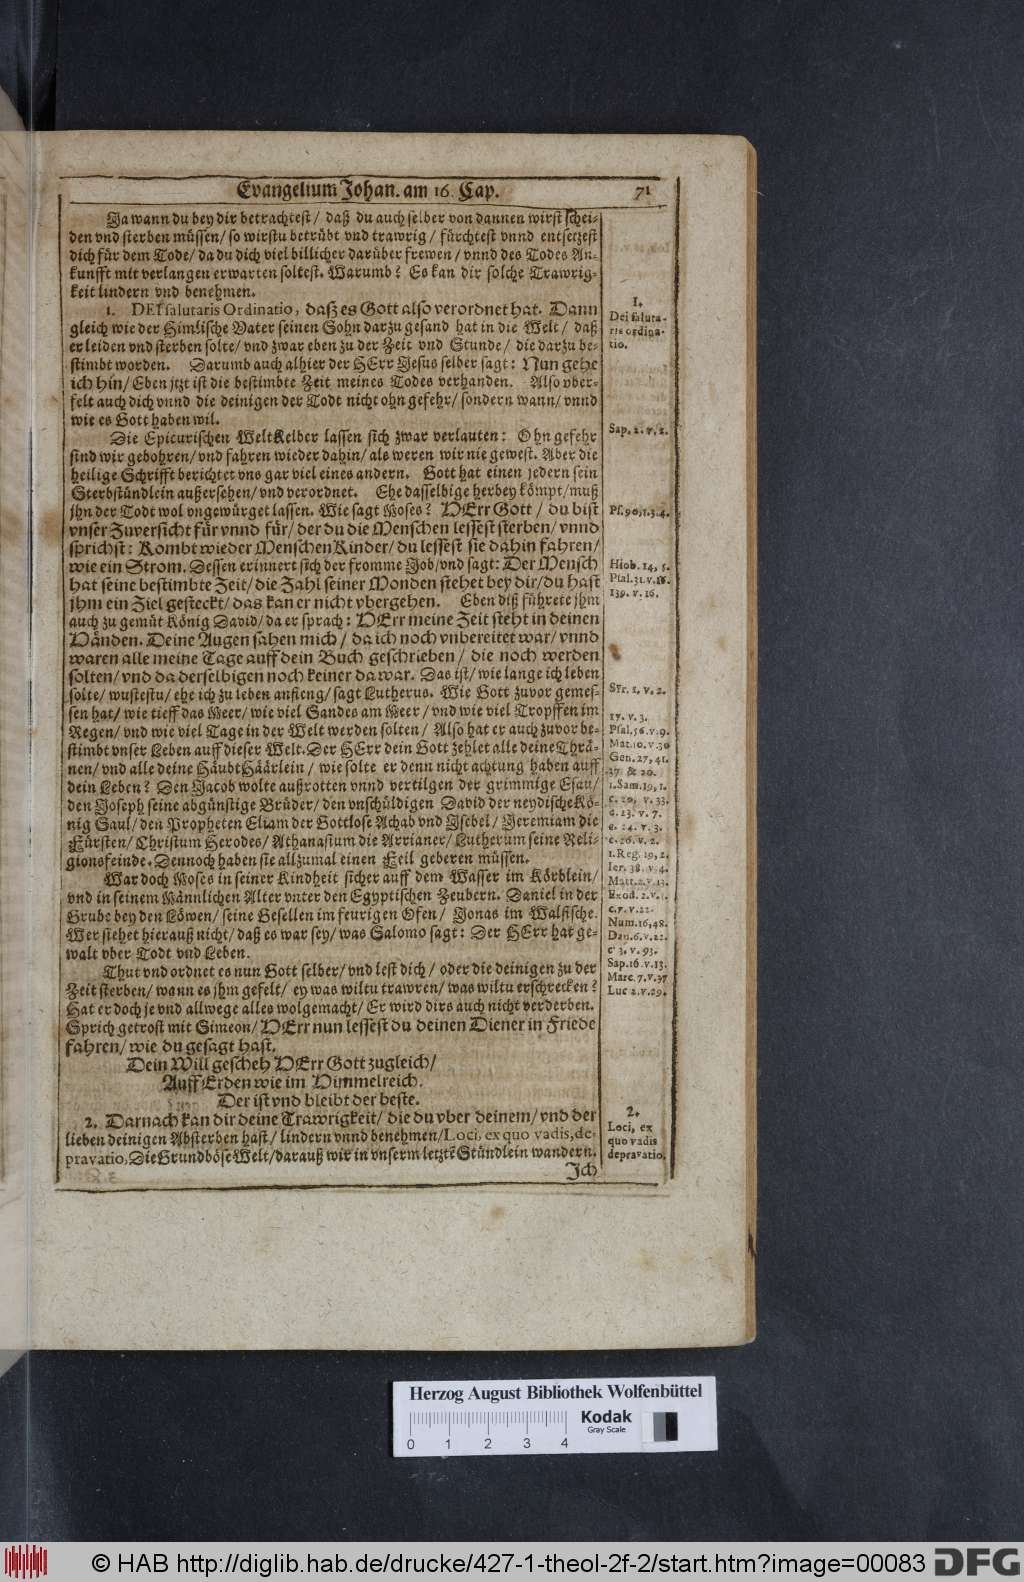 Evangelium Johan. am 16. Cap. 71
Ja wann du bey dir betrachtest / daß du auch selber von dannen wirst schei-
den vnd sterben müssen / so wirstu betrübt vnd trawrig / fürchtest vnnd entsetzest
dich für dem Tode / da du dich viel billicher darüber frewen / vnnd des Todes An-
kunfft mit verlangen erwarten soltest. Warumb? Es kan dir solche Trawrig-
keit lindern vnd benehmen.
1. DEI salutaris Ordinatio, daß es Gott also verordnet hat. Dann
gleich wie der Himlische Vater seinen Sohn darzu gesand hat in die Welt / daß
er leiden vnd sterben solte / vnd zwar eben zu der Zeit vnd Stunde / die darzu be-
stimbt worden. Darumb auch alhier der HErr Jesus selber sagt: Nun gehe
ich hin / Eben jtzt ist die bestimbte Zeit meines Todes verhanden. Also vber-
felt auch dich vnnd die deinigen der Todt nicht ohn gefehr / sondern wann / vnnd
wie es Gott haben wil.
Die Epicurischen WeltKelber lassen sich zwar verlauten: Ohn gefehr
sind wir gebohren / vnd fahren wieder dahin / als weren wir nie gewest. Aber die
heilige Schrifft berichtet vns gar viel eines andern. Gott hat einen jedern sein
Sterbstündlein außersehen / vnd verordnet. Ehe dasselbige herbey kömpt / muß
jhn der Todt wol vngewürget lassen. Wie sagt Moses? HErr Gott / du bist
vnser Zuversicht für vnnd für / der du die Menschen lessest sterben / vnnd
sprichst: Kombt wieder MenschenKinder / du lessest sie dahin fahren /
wie ein Strom. Dessen erinnert sich der fromme Job / vnd sagt: Der Mensch
hat seine bestimbte Zeit / die Zahl seiner Monden stehet bey dir / du hast
jhm ein Ziel gesteckt / das kan er nicht vbergehen. Eben diß führete jhm
auch zu gemüt König David / da er sprach: HErr meine Zeit steht in deinen
Händen. Deine Augen sahen mich / da ich noch vnbereitet war / vnnd
waren alle meine Tage auff dein Buch geschrieben / die noch werden
solten / vnd da derselbigen noch keiner da war. Das ist / wie lange ich leben
solte / wustestu / ehe ich zu leben anfieng / sagt Lutherus. Wie Gott zuvor gemes-
sen hat / wie tieff das Meer / wie viel Sandes am Meer / vnd wie viel Tropffen im
Regen / vnd wie viel Tage in der Welt werden solten / Also hat er auch zuvor be-
stimbt vnser Leben auff dieser Welt. Der HErr dein Gott zehlet alle deine Thrä-
nen / vnd alle deine HäubtHäärlein / wie solte er denn nicht achtung haben auff
dein Leben? Den Jacob wolte außrotten vnnd vertilgen der grimmige Esau /
den Joseph seine abgünstige Brüder / den vnschüldigen David der neydische Kö-
nig Saul / den Propheten Eliam der Gottlose Achab vnd Isebel / Jeremiam die
Fürsten / Christum Herodes / Athanasium die Arrianer / Lutherum seine Reli-
gionsfeinde. Dennoch haben sie allzumal einen Feil geberen müssen.
War doch Moses in seiner Kindheit sicher auff dem Wasser im Körblein /
vnd in seinem Männlichen Alter vnter den Egyptischen Zeubern. Daniel in der
Grube bey den Löwen / seine Gesellen im feurigen Ofen / Jonas im Walfische.
Wer stehet hierauß nicht / daß es war sey / was Salomo sagt: Der HErr hat ge-
walt vber Todt vnd Leben.
Thut vnd ordnet es nun Gott selber / vnd lest dich / oder die deinigen zu der
Zeit sterben / wann es jhm gefelt / ey was wiltu trawren / was wiltu erschrecken?
Hat er doch je vnd allwege alles wolgemacht / Er wird dirs auch nicht verderben.
Sprich getrost mit Simeon / HErr nun lessest du deinen Diener in Friede
fahren / wie du gesagt hast.
Dein Will gescheh HErr Gott zugleich /
Auff Erden wie im Himmelreich.
Der ist vnd bleibt der beste.
2. Darnach kan dir deine Trawrigkeit / die du vber deinem / vnd der
lieben deinigen Absterben hast / lindern vnnd benehmen / Loci, ex quo vadis, de-
pravatio, Die Grundböse Welt / darauß wir in vnserm letztē Stündlein wandern.
Jch
1.
Dei saluta-
ris ordina-
tio.
Sap. 2. v. 2.
Ps. 90, 1. 3. 4.
Hiob. 14, 5.
Psal. 31. v. 16.
139. v. 16.
Syr. 1. v. 2.
17. v. 3.
Psal. 56. v. 9.
Mat. 10. v. 30
Gen. 27, 41.
37 & 20.
1. Sam. 19, 1.
c. 20, v. 33.
c. 23. v. 7.
c. 24. v. 3.
c. 26. v. 2.
1. Reg. 19, 2.
Ier. 38. v. 4.
Matt. 2. v. 13.
Exod. 2. v. 3.
c. 7. v. 22.
Num. 16, 48.
Dan. 6. v. 22.
c. 3. v. 93.
Sap. 16. v. 13.
Marc. 7. v. 37
Luc 2. v. 29.
2.
Loci, ex
quo vadis
depravatio.
Herzog August Bibliothek Wolfenbüttel
Kodak
Gray Scale
0 1 2 3 4
© HAB http://diglib.hab.de/drucke/427-1-theol-2f-2/start.htm?image=00083 DFG